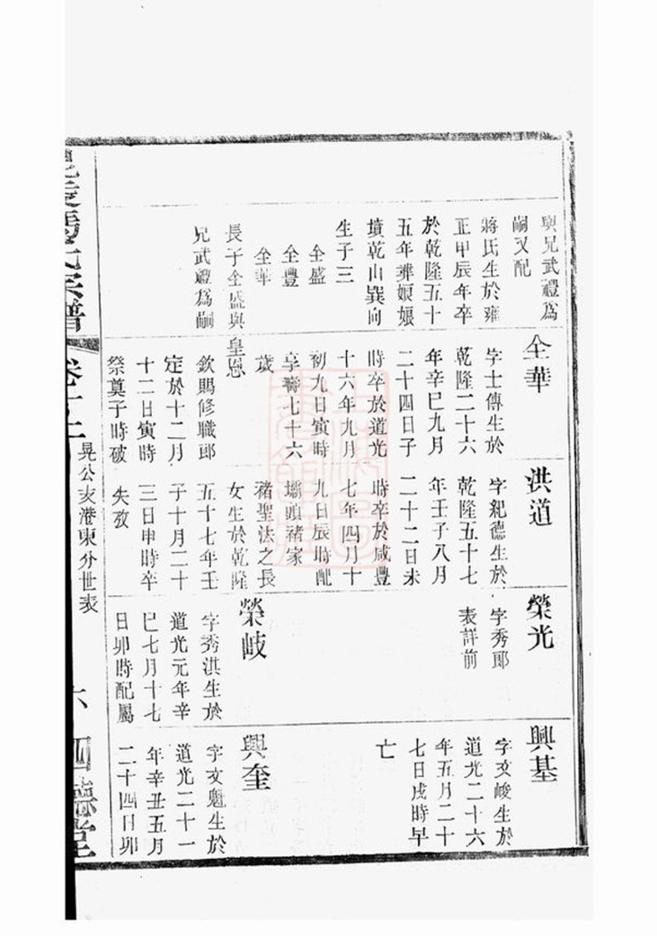 與兄武禮為
嗣又配
蔣氏生於雍
正甲辰年卒
於乾隆五十
五年葬娘娘
墳乾山巽向
生子三
全盛
全豐
全華
長子全盛與
兄武禮為嗣
全華
字士傳生於
乾隆二十六
年辛巳九月
二十四日子
時卒於道光
十六年九月
初九日寅時
享壽七十六
歲
皇恩
欽賜修職郎
定於十二月
十二日寅時
祭奠子時破
洪道
字紀德生於
乾隆五十七
年壬子八月
二十二日未
時卒於咸豐
七年四月十
九日辰時配
壩頭褚家
褚聖法之長
女生於乾隆
五十七年壬
子十月二十
三日申時卒
失攷
榮光
字秀郎
表詳前
榮岐
字秀洪生於
道光元年辛
巳七月十七
日卯時配屬
興基
字文峻生於
道光二十六
年五月二十
七日戌時早
亡
興奎
字文魁生於
道光二十一
年辛丑五月
二十四日卯
氏宗譜
卷十二
晃公支港東分世表
六
四德堂